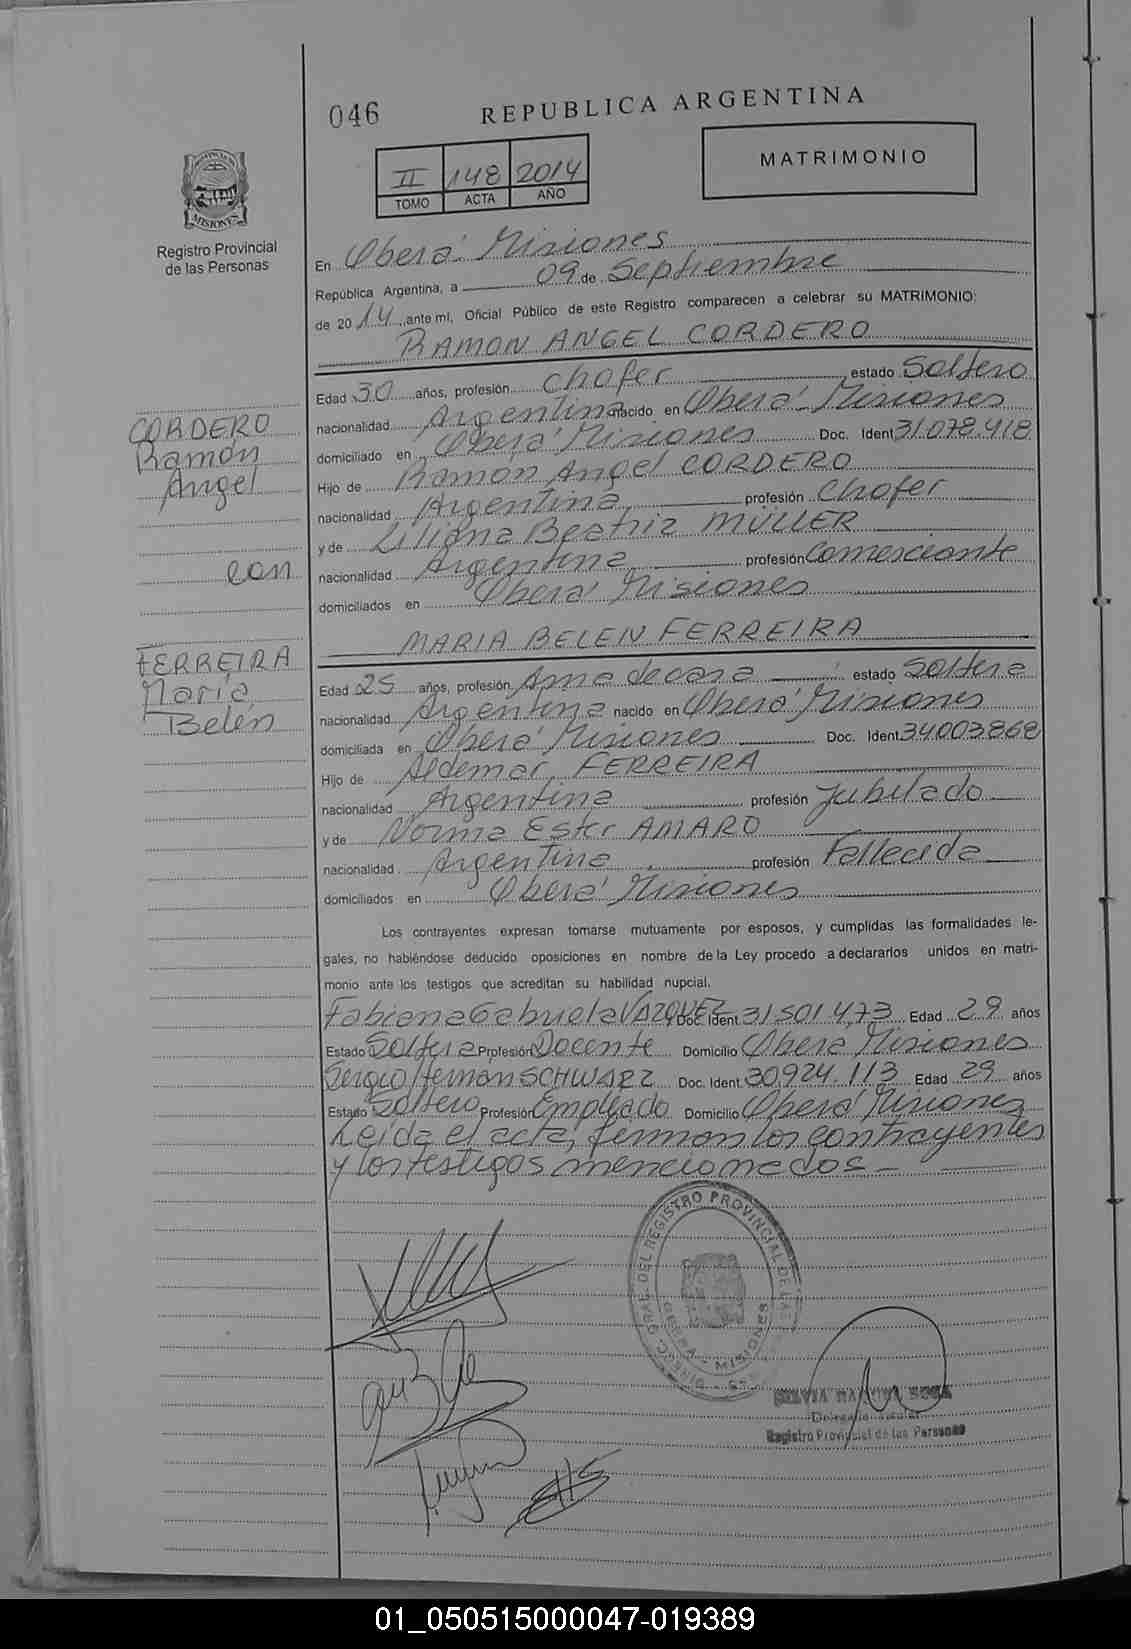 046
REPUBLICA ARGENTINA
MATRIMONIO
II 148 2014
TOMO ACTA AÑO
PROVINCIA DE
MISIONES
Registro Provincial
de las Personas
En Oberá Misiones
República Argentina, a 09 de Septiembre
de 2014, ante mí, Oficial Público de este Registro comparecen a celebrar su MATRIMONIO:
RAMON ANGEL CORDERO
Edad 30 años, profesión Chofer estado Soltero
nacionalidad Argentina nacido en Oberá Misiones
domiciliado en Oberá Misiones Doc. Ident 31.078.418
Hijo de Ramón Angel CORDERO
nacionalidad Argentina profesión Chofer
y de Liliana Beatriz MÜLLER
nacionalidad Argentina profesión Comerciante
domiciliados en Oberá Misiones
CORDERO
Ramón
Angel
con
FERREIRA
María
Belén
MARIA BELEN FERREIRA
Edad 25 años, profesión Ama de casa estado Soltera
nacionalidad Argentina nacido en Oberá Misiones
domiciliada en Oberá Misiones Doc. Ident. 34003868
Hijo de Aldemar FERREIRA
nacionalidad Argentina profesión Jubilado
y de Norma Ester AMARO
nacionalidad Argentina profesión Fallecida
domiciliados en Oberá Misiones
Los contrayentes expresan tomarse mutuamente por esposos, y cumplidas las formalidades le-
gales, no habiéndose deducido oposiciones en nombre de la Ley procedo a declararlos unidos en matri-
monio ante los testigos que acreditan su habilidad nupcial.
Fabiana Gabriela VAZQUEZ Doc. Ident 31501473 Edad 29 años
Estado Soltera Profesión Docente Domicilio Oberá Misiones
Sergio Hernán SCHWARZ Doc. Ident. 30.924.113 Edad 29 años
Estado Soltero Profesión Empleado Domicilio Oberá Misiones
Leída el acta, firman los contrayentes
y los testigos mencionados
DIREC. GRAL. DEL REGISTRO PROVINCIAL DE LAS
OBERA - MISIONES
Registro Provincial de las Personas
01_050515000047-019389